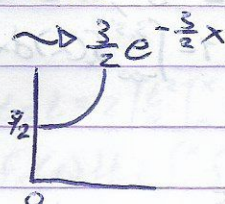 ~▷ 3/2 e^(-3/2 x)
3/2
0